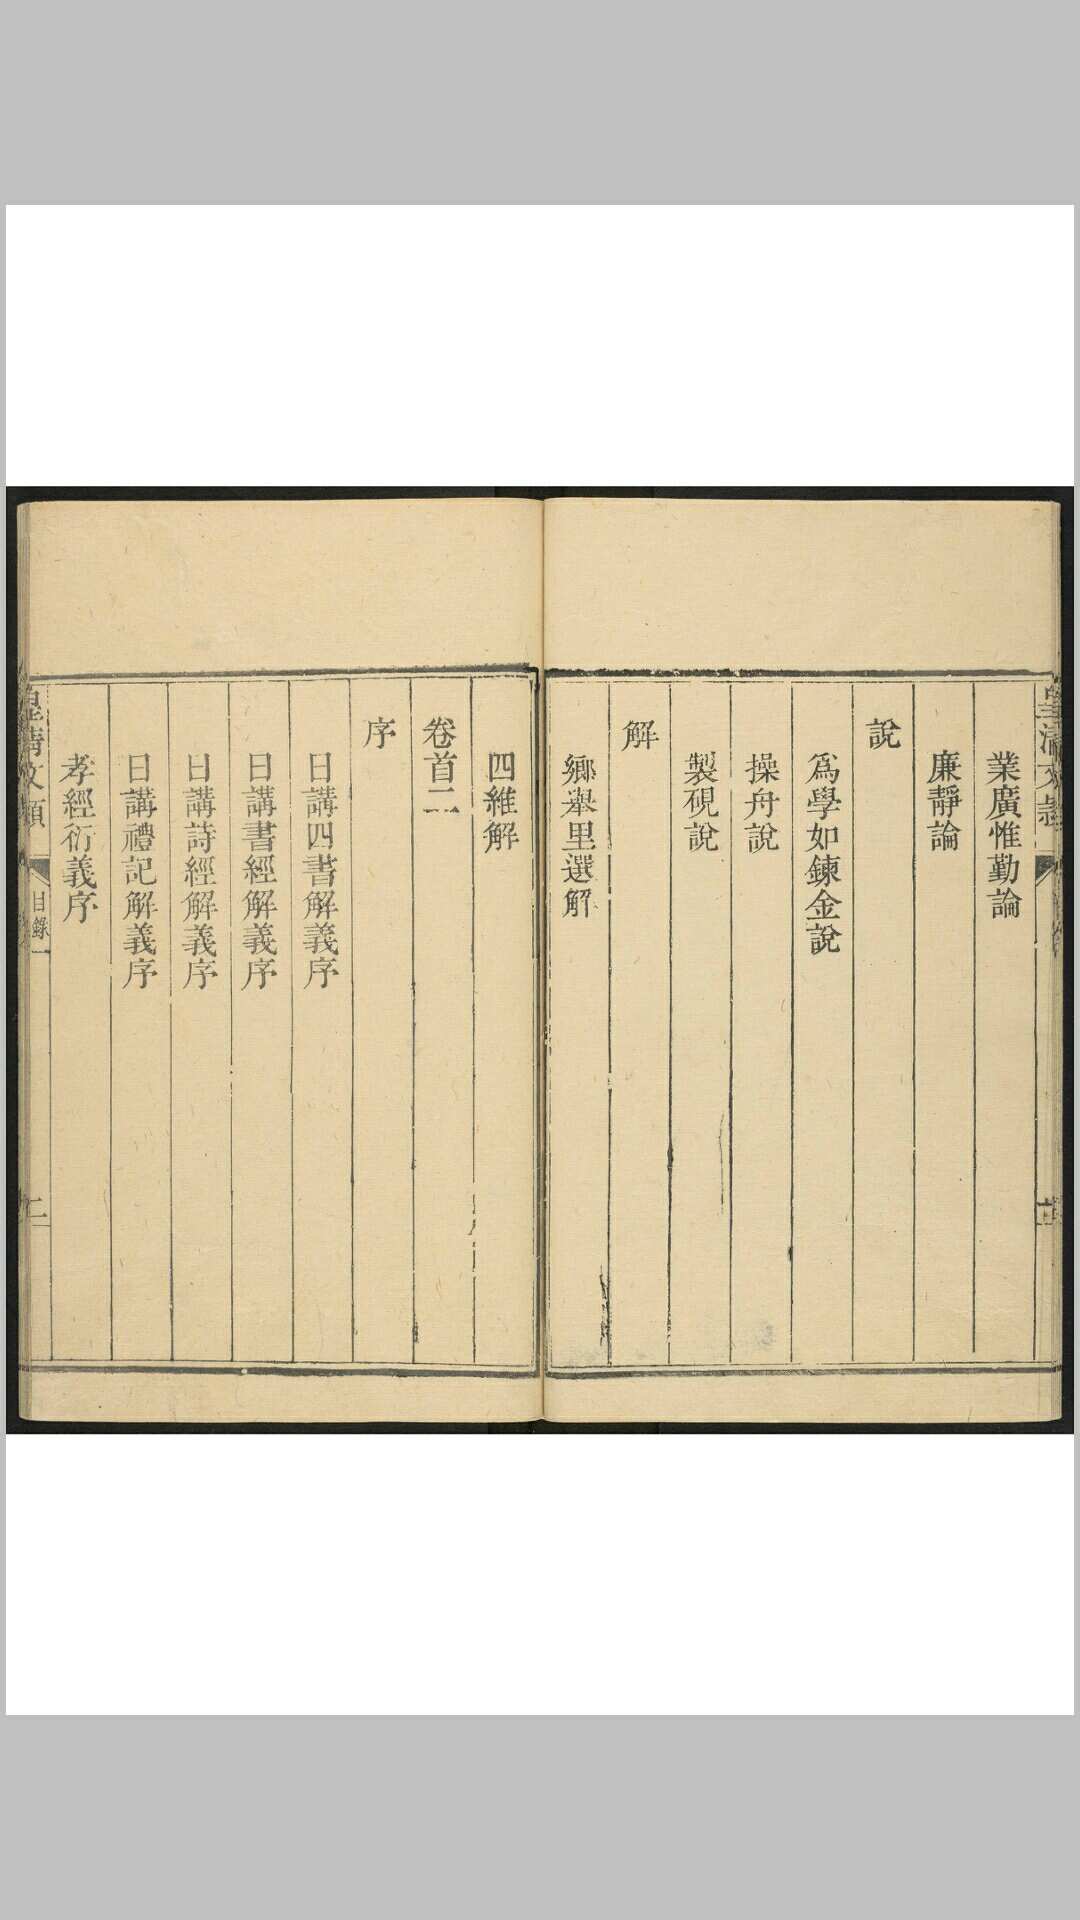 業廣惟勤論
廉靜論
說
爲學如鍊金說
操舟說
製硯說
解
鄉舉里選解
四維解
卷首二
序
日講四書解義序
日講書經解義序
日講詩經解義序
日講禮記解義序
孝經衍義序
皇清文類
目錄一
二